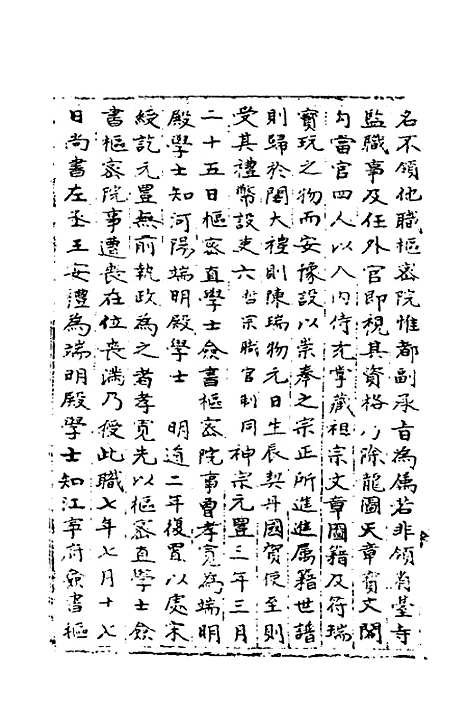 名不領他職樞密院惟都副承旨為屬若非領省臺寺
監職事及任外官即視其資格以除龍圖天章寶文閣
勾當官四人以入內侍充掌藏祖宗文章圖籍及符瑞
寶玩之物而安像設以崇奉之宗正所進進属籍世譜
則歸於閣大禮則陳瑞物元日生辰契丹國賀使至則
受其禮幣設吏六哲宗職官制同神宗元豐三年三月
二十五日樞密直學士僉書樞密院事曹孝寬為端明
殿學士知河陽端明殿學士 明道二年復置以處宋
綬訖元豐無前執政為之者孝寬先以樞密直學士僉
書樞密院事遭喪在位喪滿乃授此職七年七月十七
日尚書左丞王安禮為端明殿學士知江寧府僉書樞